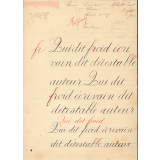 fr. Qui dit froid écri
vain dit détestable
auteur Qui dit
froid écrivain dit
détestable auteur
Qui dit froid
Qui dit froid écrivain
dit détestable auteur